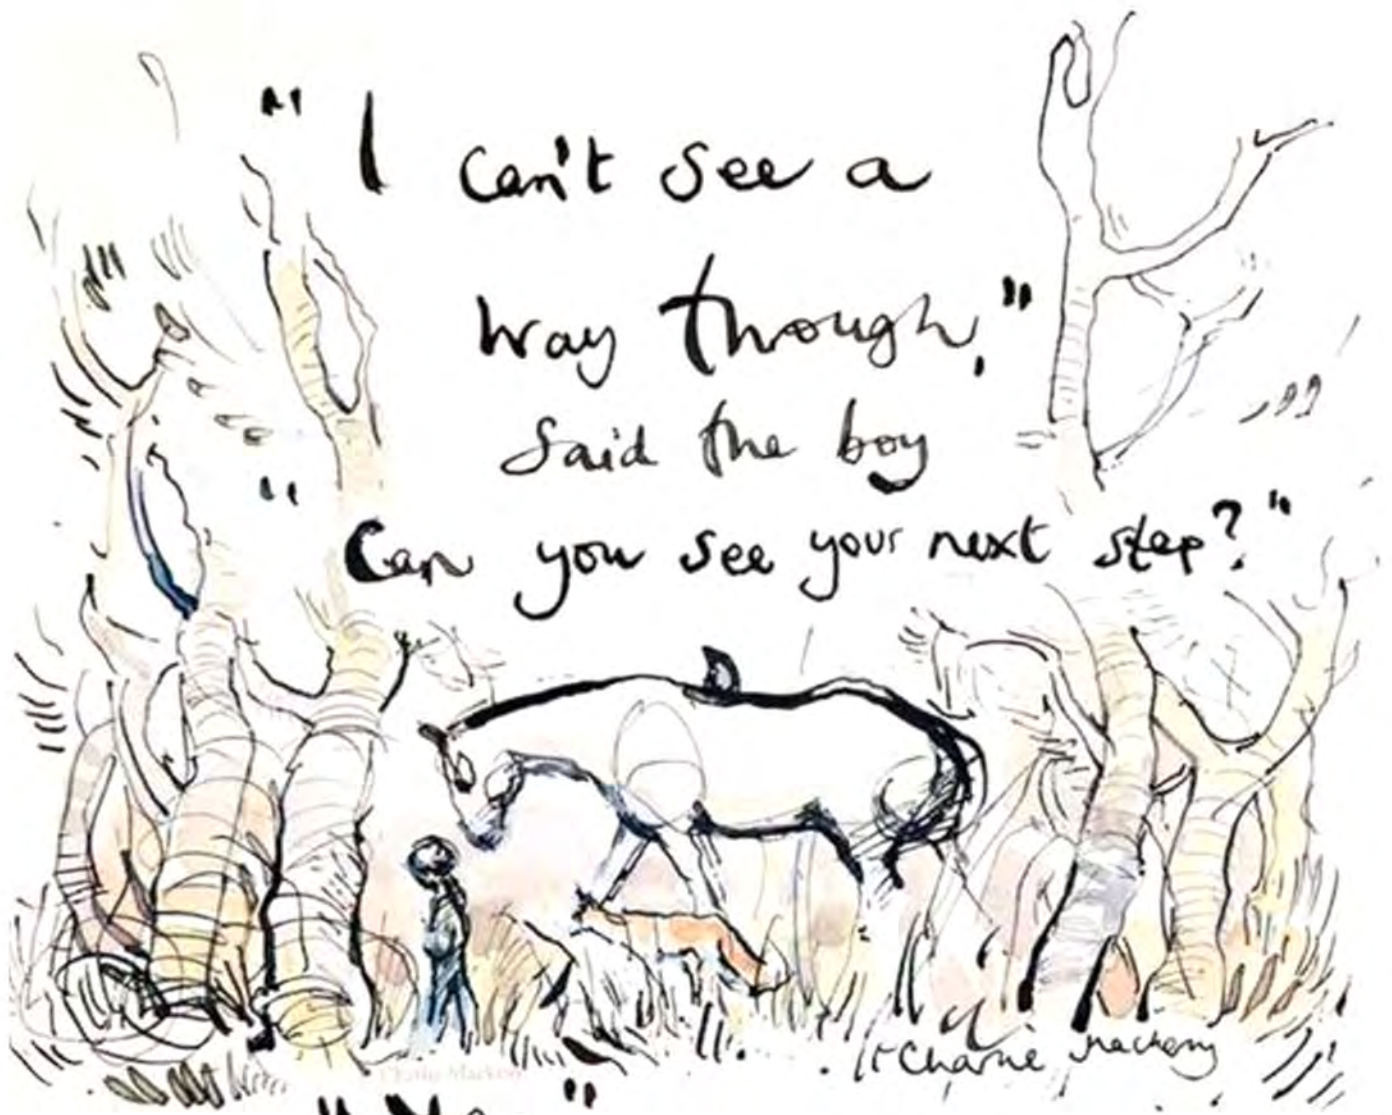 "I can't see a
way through,"
said the boy
"Can you see your next step?"
Charlie Mackesy